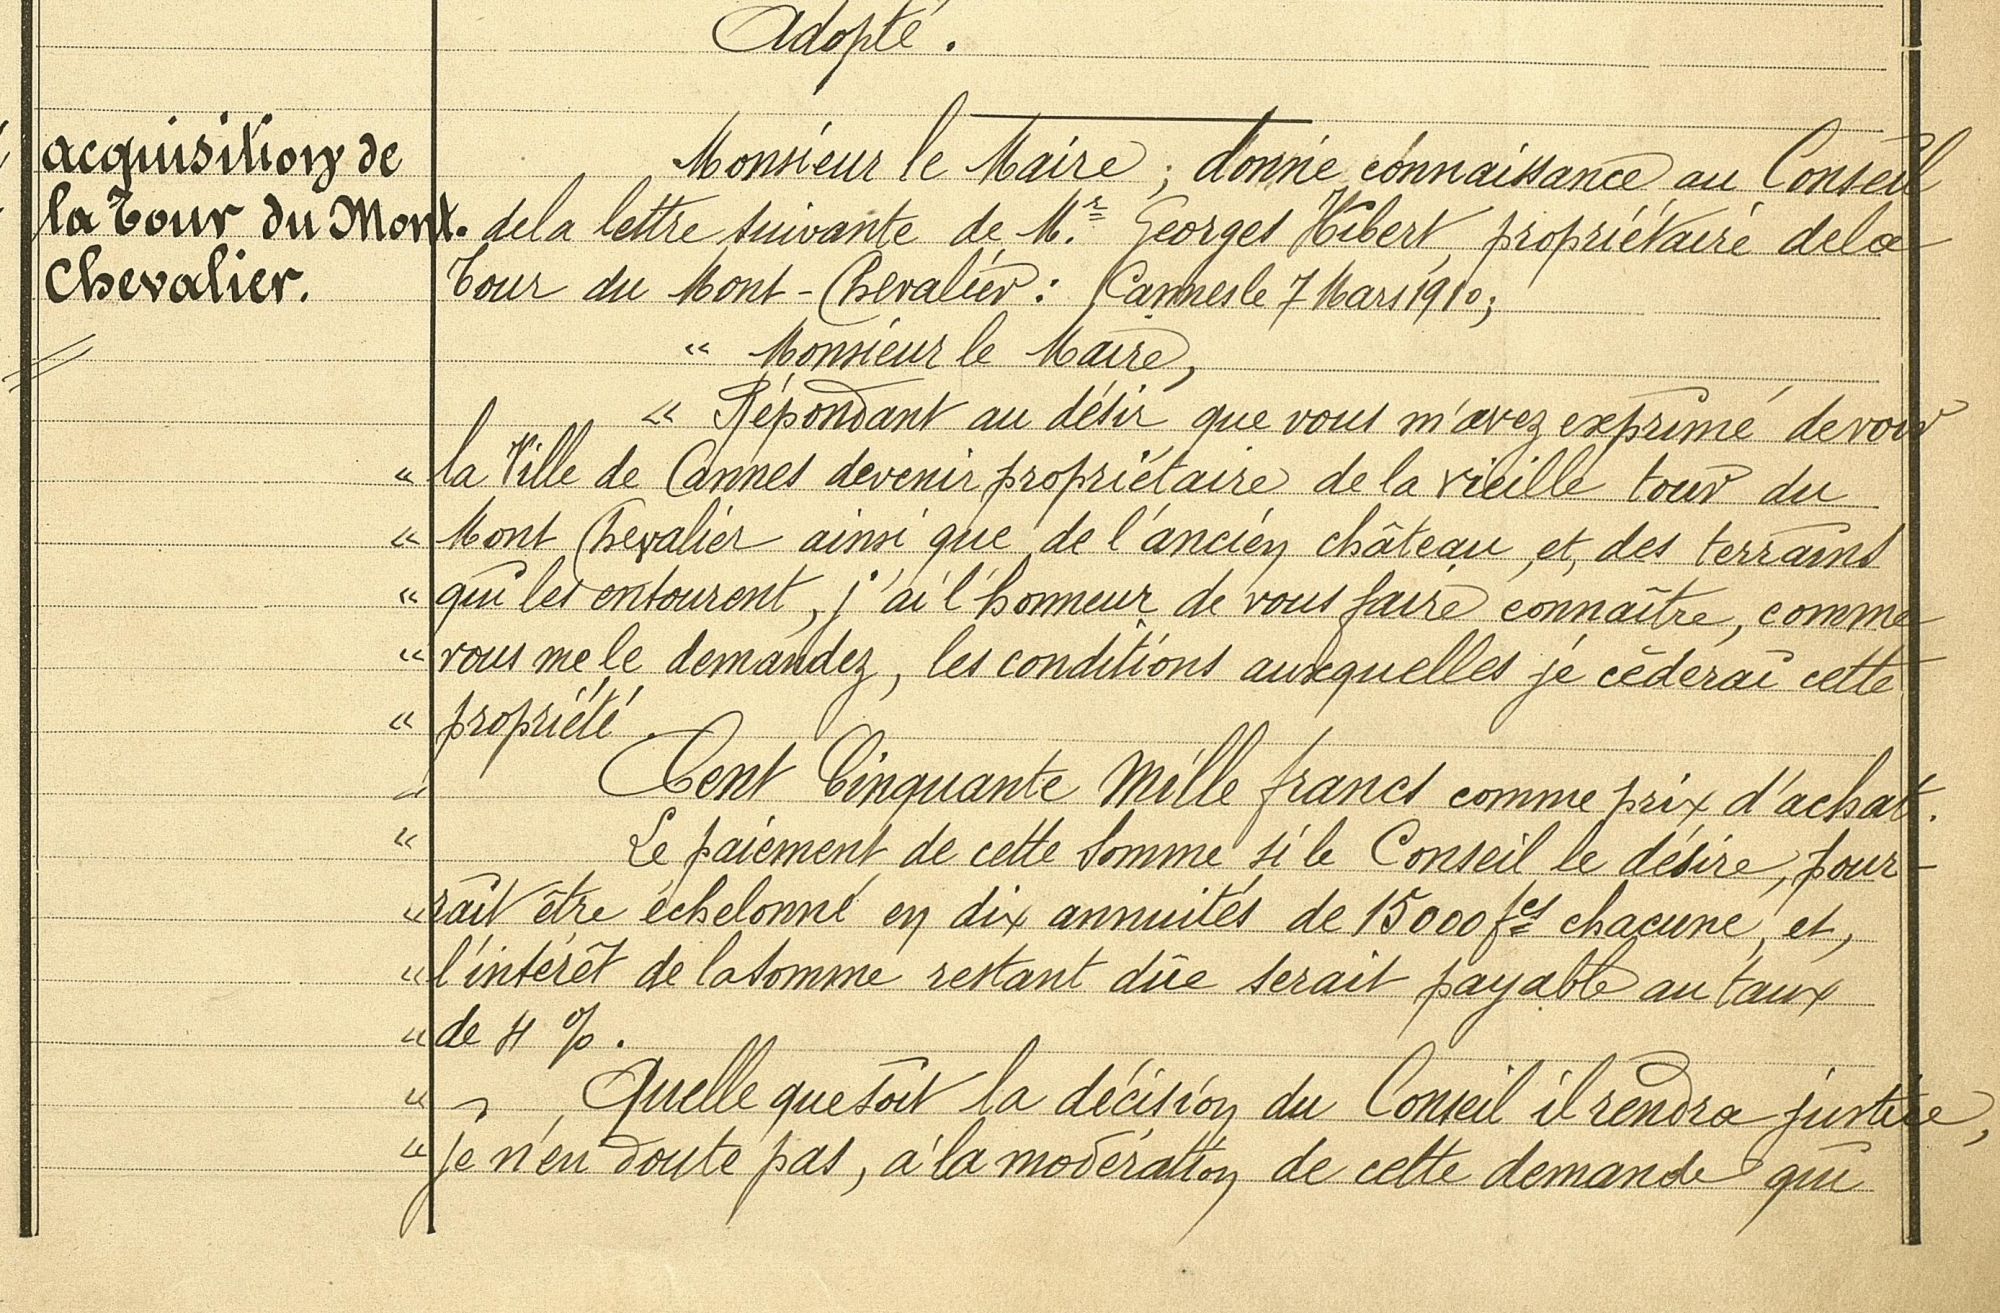 Adopté.
acquisition de
la Tour du Mont.
Chevalier.
Monsieur le Maire ; donne connaissance au Conseil
de la lettre suivante de M.r Georges Hibert, propriétaire de la
Tour du Mont-Chevalier : Cannes le 7 Mars 1910;
" Monsieur le Maire,
" Répondant au désir que vous m'avez exprimé de voir
" la Ville de Cannes devenir propriétaire de la vieille tour du
" Mont Chevalier ainsi que de l'ancien château, et, des terrains
" qui les entourent, j'ai l'honneur de vous faire connaître, comme
" vous me le demandez, les conditions auxquelles je cèderai cette
" propriété.
" Cent Cinquante Mille francs comme prix d'achat.
" Le paiement de cette somme si le Conseil le désire, pour-
" rait être échelonné en dix annuités de 15000 fcs chacune, et,
" l'intérêt de la somme restant dûe serait payable au taux
" de 4 %.
" Quelle que soit la décision du Conseil il rendra justice,
" je n'en doute pas, à la modération de cette demande qui